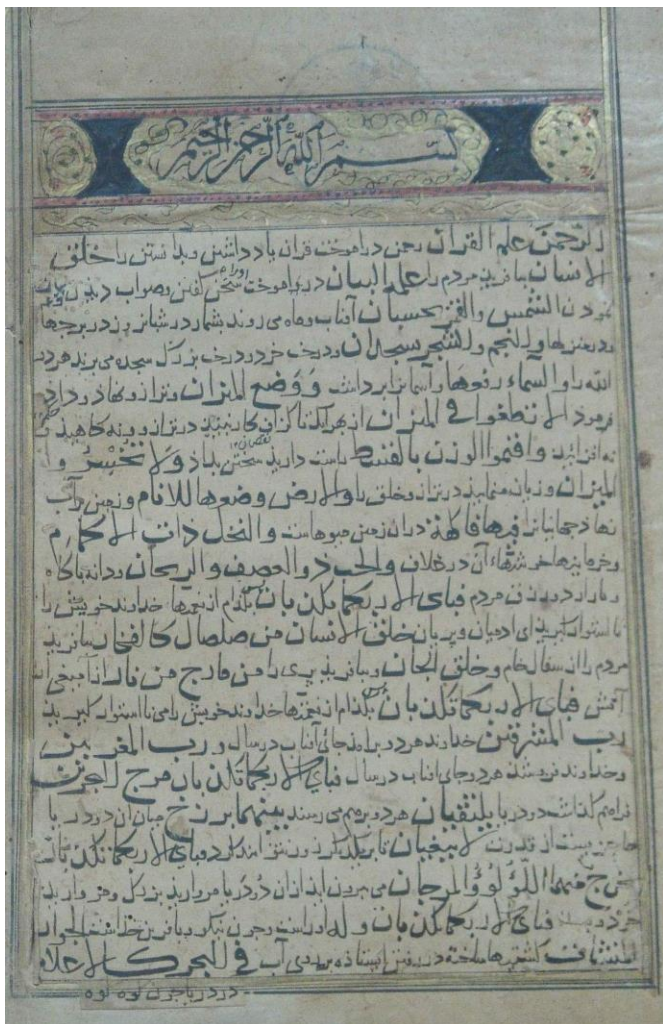 بسم الله الرحمن الرحيم
الرحمن علم القران رحمن در اموخت قران یاد داشتن و بدانستن را خلق
الانسان بیافرید مردم را علمه البیان دری اموخت سخن گفتن و صواب دیدن
نمودن الشمس والقمر بحسبان آفتاب و ماه می روند بشمار در شبانروز در برجها
والنجم والشجر یسجدان و درخت خرد و درخت بزرگ سجده می برند هردو
الله را والسماء رفعها و آسمانرا برداشت ووضع المیزان و ترازو نهاد و داد
فرمود الا تطغوا فی المیزان از بهر آنکه تا گزاف کار نباشید در ترازو و نه کاهید
نه افزائید واقیموا الوزن بالقسط راست دارید سختن بداد ولا تخسروا
المیزان و زیان منمایید در ترازو خلق را والارض وضعها للانام و زمین بر آب
نهاد جهانیانرا فیها فاکهة در ان زمین میوهاست والنخل ذات الاکمام
و خرمابنها خوشهاء آن در غلاف والحب ذو العصف والریحان و دانه با کاه
مردم فبای الاء ربکما تکذبان بکدام از نعمتها خداوند خویش را
نا استوار گیرید ای ادمیان و پریان خلق الانسان من صلصال کالفخار بیافرید
مردم را از سفال خام وخلق الجان و بیافرید پری را من مارج من نار از آمیغی از
آتش فبای الاء ربکما تکذبان بکدام از نعمتها خداوند خویش را می نا استوار گیرید
رب المشرقین خداوند هر دو برامدجای آفتاب در سال ورب المغربین
و خداوند فروشد هر دو جای افتاب در سال فبای الاء ربکما تکذبان مرج البحرین
فراهم گذاشت دو دریا یلتقیان هر دو برهم می رسند بینهما برزخ میان ان دو دریا
حاجزیست از قدرت لا یبغیان تا بر یکدیگر زور نتوانند کرد فبای الاء ربکما تکذبان
یخرج منهما اللؤلؤ والمرجان می بیرون اید از ان دو دریا مروارید بزرگ و مروارید
خرد فبای الاء ربکما تکذبان وله او راست و جون نیکو بیافرین خداست الجوار
المنشأت کشتیها ساخته در رفتن ایستاده بر روی آب فی البحر کالاعلام
در دریا جون کوه کوه